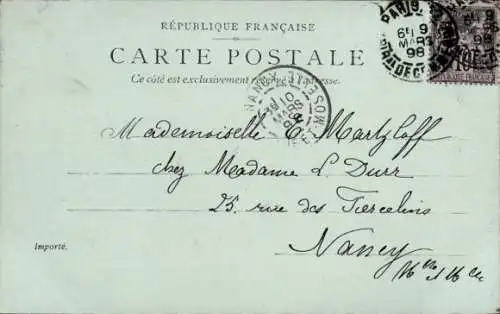 RÉPUBLIQUE FRANÇAISE
CARTE POSTALE
Ce côté est exclusivement réservé à l'adresse.
PARIS
6E 9
MARS
98
NANCY
10
MARS
98
MEURTHE-ET-MOSELLE
Mademoiselle E Martzloff
chez Madame L. Durr
25. rue des Tiercelins
Nancy
Mthe et Mlle
Importé.